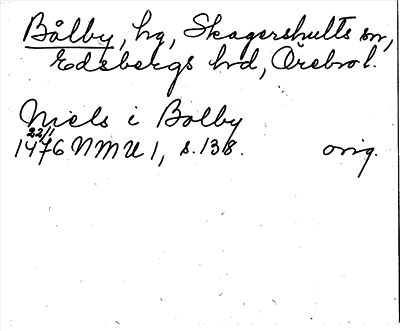 Bålby, hg, Skagershults sn,
Edsbergs hd, Örebro l.
Niels i Bolby
22/1
1476 NMU 1, s. 138. orig.